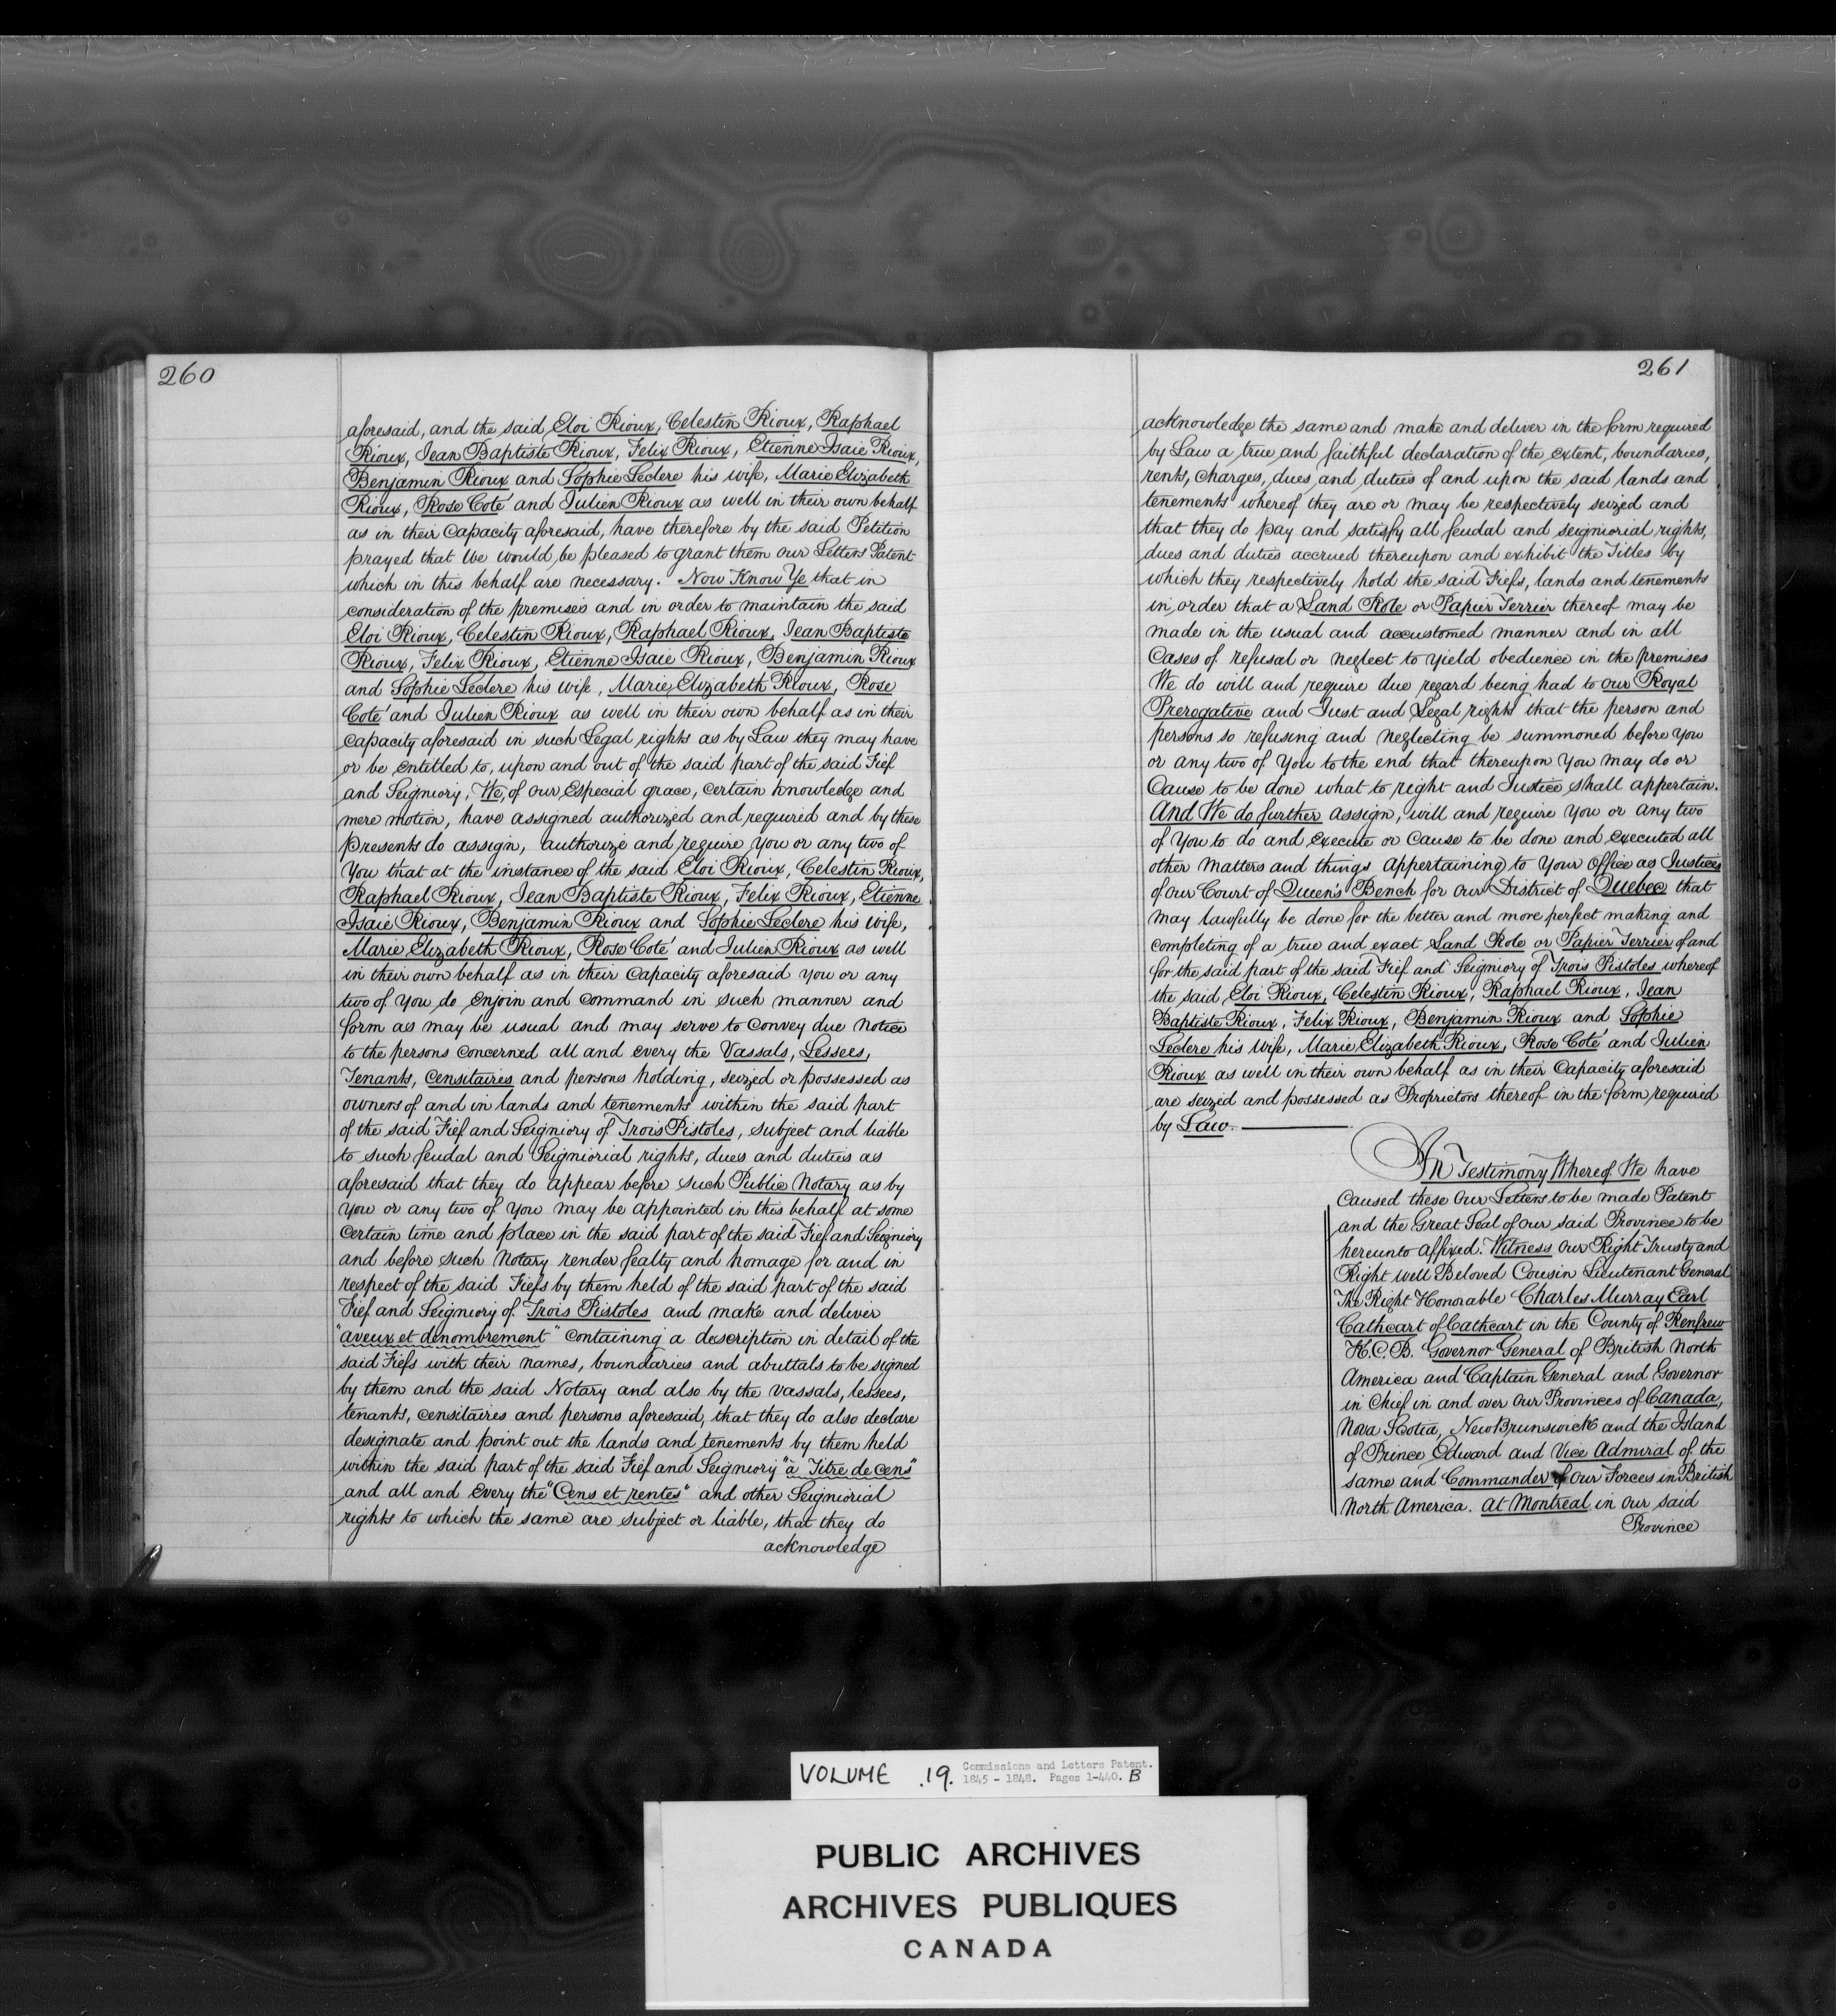 260
aforesaid, and the said Eloi Rioux, Celestin Rioux, Raphael
Rioux, Jean Baptiste Rioux, Felix Rioux, Etienne Isaie Rioux,
Benjamin Rioux and Sophie Leclere his wife, Marie Elizabeth
Rioux, Rose Coté and Julien Rioux as well in their own behalf
as in their Capacity aforesaid, have therefore by the said Petition
prayed that We would be pleased to grant them our Letters Patent
which in this behalf are necessary. Now Know Ye that in
consideration of the premises and in order to maintain the said
Eloi Rioux, Celestin Rioux, Raphael Rioux, Jean Baptiste
Rioux, Felix Rioux, Etienne Isaie Rioux, Benjamin Rioux
and Sophie Leclere his wife, Marie Elizabeth Rioux, Rose
Coté and Julien Rioux as well in their own behalf as in their
Capacity aforesaid in such Legal rights as by Law they may have
or be entitled to, upon and out of the said part of the said Fief
and Seigniory, We, of our Especial grace, certain knowledge and
mere motion, have assigned authorized and required and by these
presents do assign, authorize and require you or any two of
You that at the instance of the said Eloi Rioux, Celestin Rioux,
Raphael Rioux, Jean Baptiste Rioux, Felix Rioux, Etienne
Isaie Rioux, Benjamin Rioux and Sophie Leclere his wife,
Marie Elizabeth Rioux, Rose Coté and Julien Rioux as well
in their own behalf as in their Capacity aforesaid you or any
two of you do enjoin and command in such manner and
form as may be usual and may serve to convey due notice
to the persons concerned all and every the Vassals, Lessees,
Tenants, Censitaires and persons holding, seized or possessed as
owners of and in lands and tenements within the said part
of the said Fief and Seigniory of Trois Pistoles, subject and liable
to such feudal and Seigniorial rights, dues and duties as
aforesaid that they do appear before such Public Notary as by
you or any two of you may be appointed in this behalf at some
certain time and place in the said part of the said Fief and Seigniory
and before such Notary render fealty and homage for and in
respect of the said Fiefs by them held of the said part of the said
Fief and Seigniory of Trois Pistoles and make and deliver
"aveux et dénombrement" containing a description in detail of the
said Fiefs with their names, boundaries and abuttals to be signed
by them and the said Notary and also by the vassals, lessees,
tenants, censitaires and persons aforesaid, that they do also declare
designate and point out the lands and tenements by them held
within the said part of the said Fief and Seigniory "à Titre de cens"
and all and every the "Cens et rentes" and other Seigniorial
rights to which the same are subject or liable, that they do
acknowledge
261
acknowledge the same and make and deliver in the form required
by Law a true and faithful declaration of the extent, boundaries,
rents, charges, dues and duties of and upon the said lands and
tenements whereof they are or may be respectively seized and
that they do pay and satisfy all feudal and seigniorial rights,
dues and duties accrued thereupon and exhibit the Titles by
which they respectively hold the said Fiefs, lands and tenements
in order that a Land Role or Papier Terrier thereof may be
made in the usual and accustomed manner and in all
Cases of refusal or neglect to yield obedience in the premises
We do will and require due regard being had to our Royal
Prerogative and Just and Legal rights that the person and
persons so refusing and neglecting be summoned before You
or any two of You to the end that thereupon You may do or
Cause to be done what to right and Justice shall appertain.
And We do further assign, will and require You or any two
of You to do and execute or Cause to be done and executed all
other matters and things appertaining to Your office as Justices
of our Court of Queen's Bench for our District of Quebec that
may lawfully be done for the better and more perfect making and
completing of a true and exact Land Role or Papier Terrier of and
for the said part of the said Fief and Seigniory of Trois Pistoles whereof
the said Eloi Rioux, Celestin Rioux, Raphael Rioux, Jean
Baptiste Rioux, Felix Rioux, Benjamin Rioux and Sophie
Leclere his Wife, Marie Elizabeth Rioux, Rose Coté and Julien
Rioux as well in their own behalf as in their Capacity aforesaid
are seized and possessed as Proprietors thereof in the form required
by Law.
In Testimony Whereof We have
Caused these Our Letters to be made Patent
and the Great Seal of Our said Province to be
hereunto affixed. Witness Our Right Trusty and
Right well Beloved Cousin Lieutenant General
The Right Honorable Charles Murray Earl
Cathcart of Cathcart in the County of Renfrew
K.C.B. Governor General of British North
America and Captain General and Governor
in Chief in and over our Provinces of Canada,
Nova Scotia, New Brunswick and the Island
of Prince Edward and Vice Admiral of the
same and Commander of Our Forces in British
North America. At Montreal in Our said
Province
VOLUME .19. Commissions and Letters Patent.
1845 - 1848. Pages 1-440. B
PUBLIC ARCHIVES
ARCHIVES PUBLIQUES
CANADA